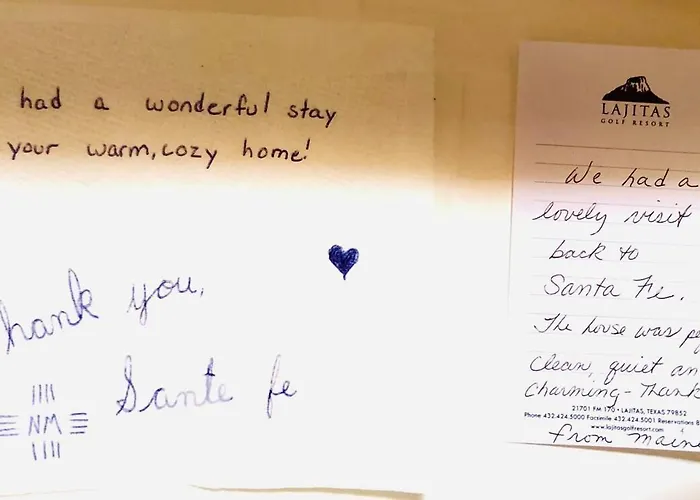 had a wonderful stay
your warm, cozy home!
hank you,
Sante fe
NM
LAJITAS
GOLF RESORT
We had a
lovely visit
back to
Santa Fe.
The house was
Clean, quiet an
Charming - Thank
21701 FM 170 • LAJITAS, TEXAS 79852
Phone 432.424.5000 Facsimile 432.424.5001 Reservations 8
www.lajitasgolfresort.com
from Maine